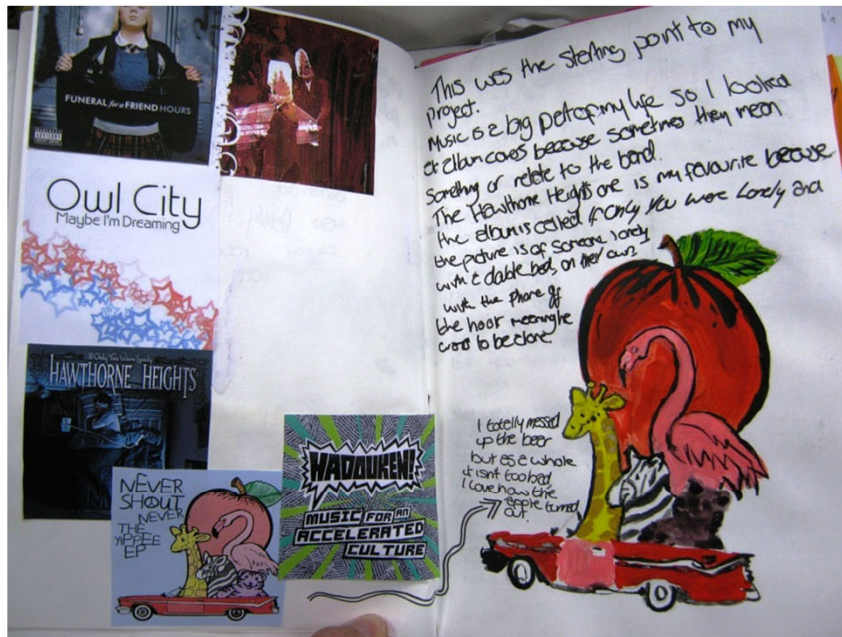 FUNERAL for a FRIEND HOURS
Owl City
Maybe I'm Dreaming
If Only You Were Lonely
HAWTHORNE HEIGHTS
NEVER
SHOUT
NEVER
THE
YIPPEE
EP
HADOUKEN!
MUSIC FOR AN
ACCELERATED
CULTURE
This was the starting point to my
project.
Music is a big part of my life so I looked
at album covers because sometimes they mean
something or relate to the band.
The Hawthorne Heights one is my favourite because
the album is called If Only You Were Lonely and
the picture is of someone lonely
with a double bed, on their own
with the phone off
the hook meaning he
wants to be alone.
I totally messed
up the bear
but as a whole
it isnt too bad
I love how the
apple turned
out.